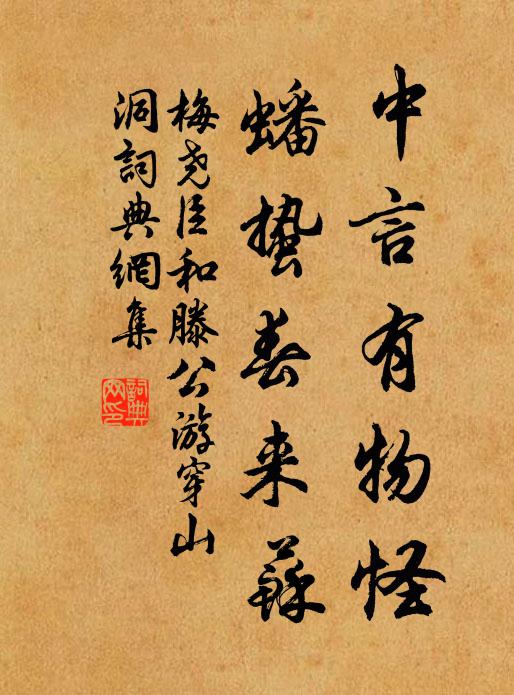 中言有物怪
蟠蛰春来蘇
梅尧臣和滕公游穿山
洞詞典網集
詞典网印